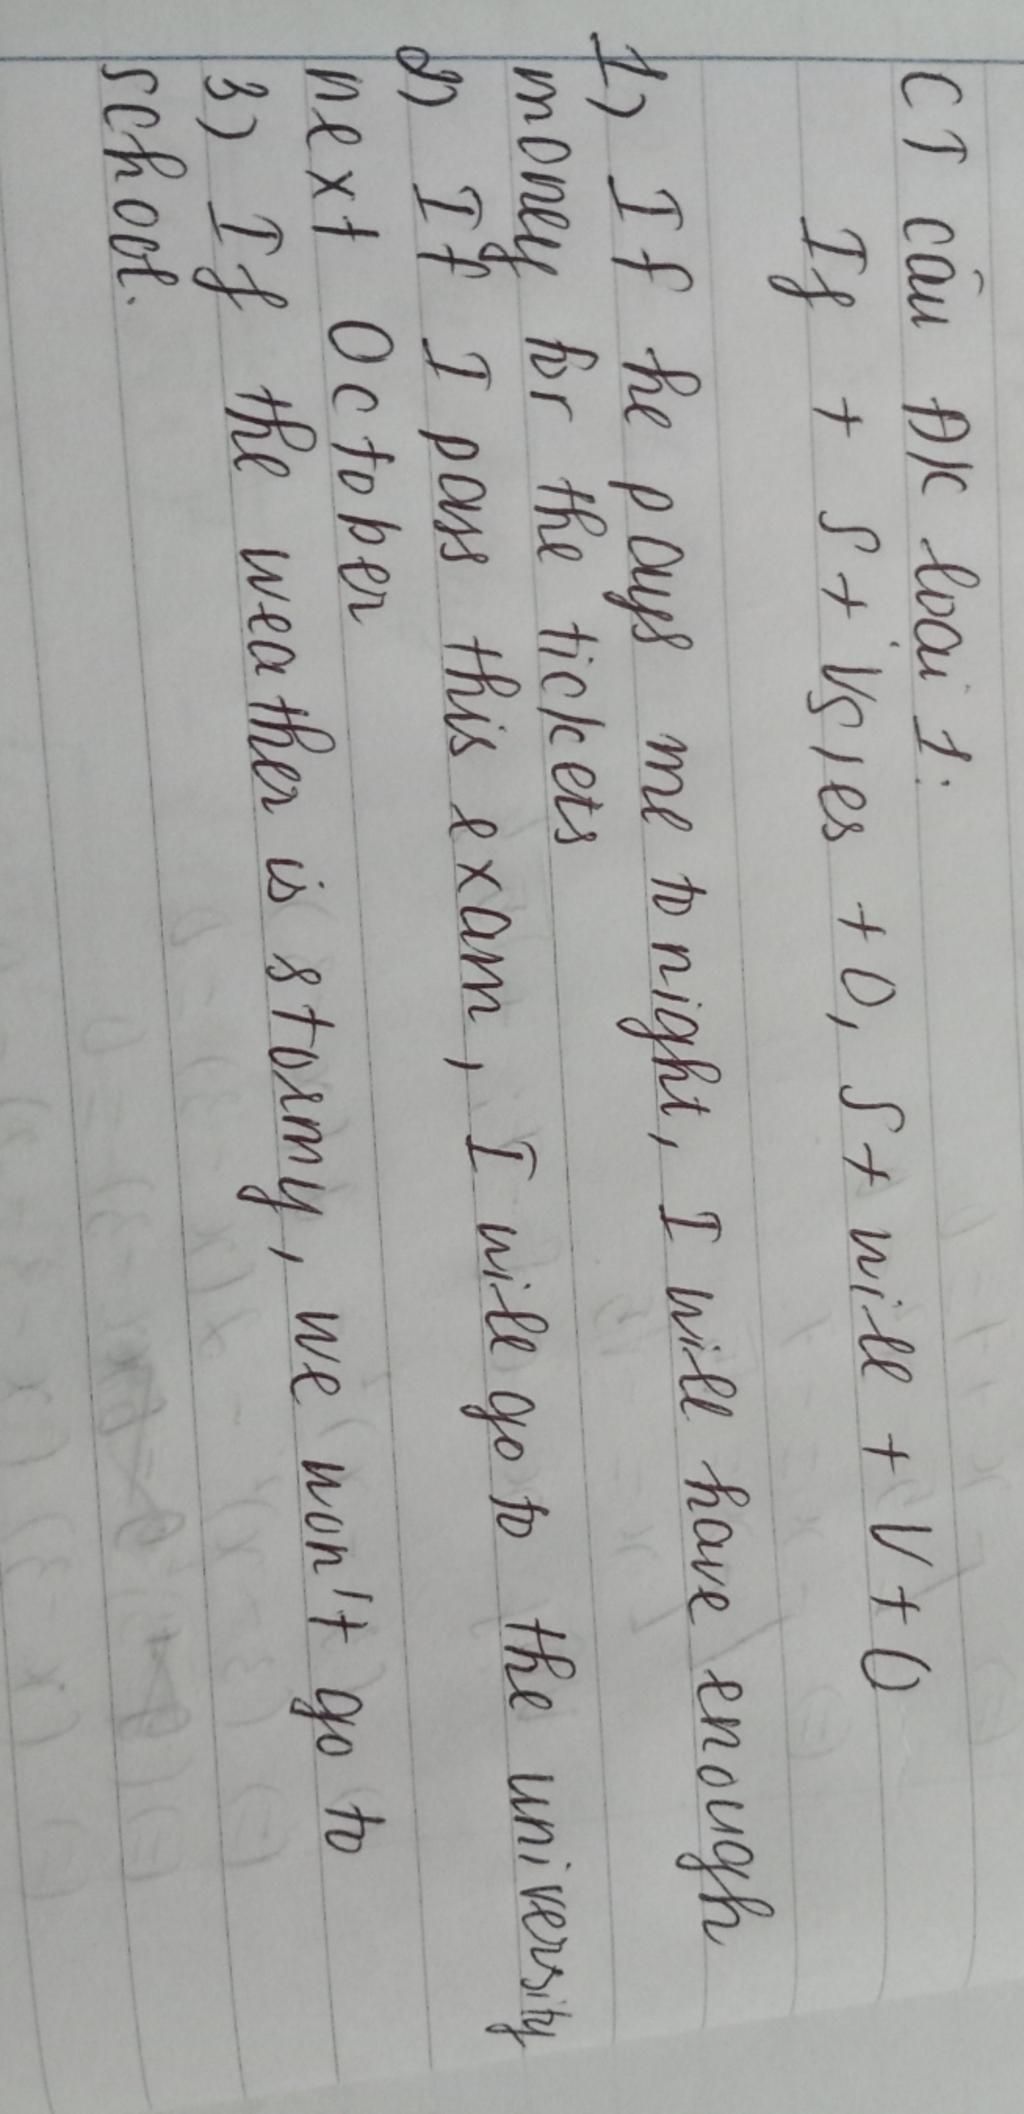 CT câu ĐK loại 1:
If + S + Vs, es + O, S + will + V + O
1) If he pays me tonight, I will have enough
money for the tickets
2) If I pass this exam, I will go to the university
next October
3) If the weather is stormy, we won't go to
school.